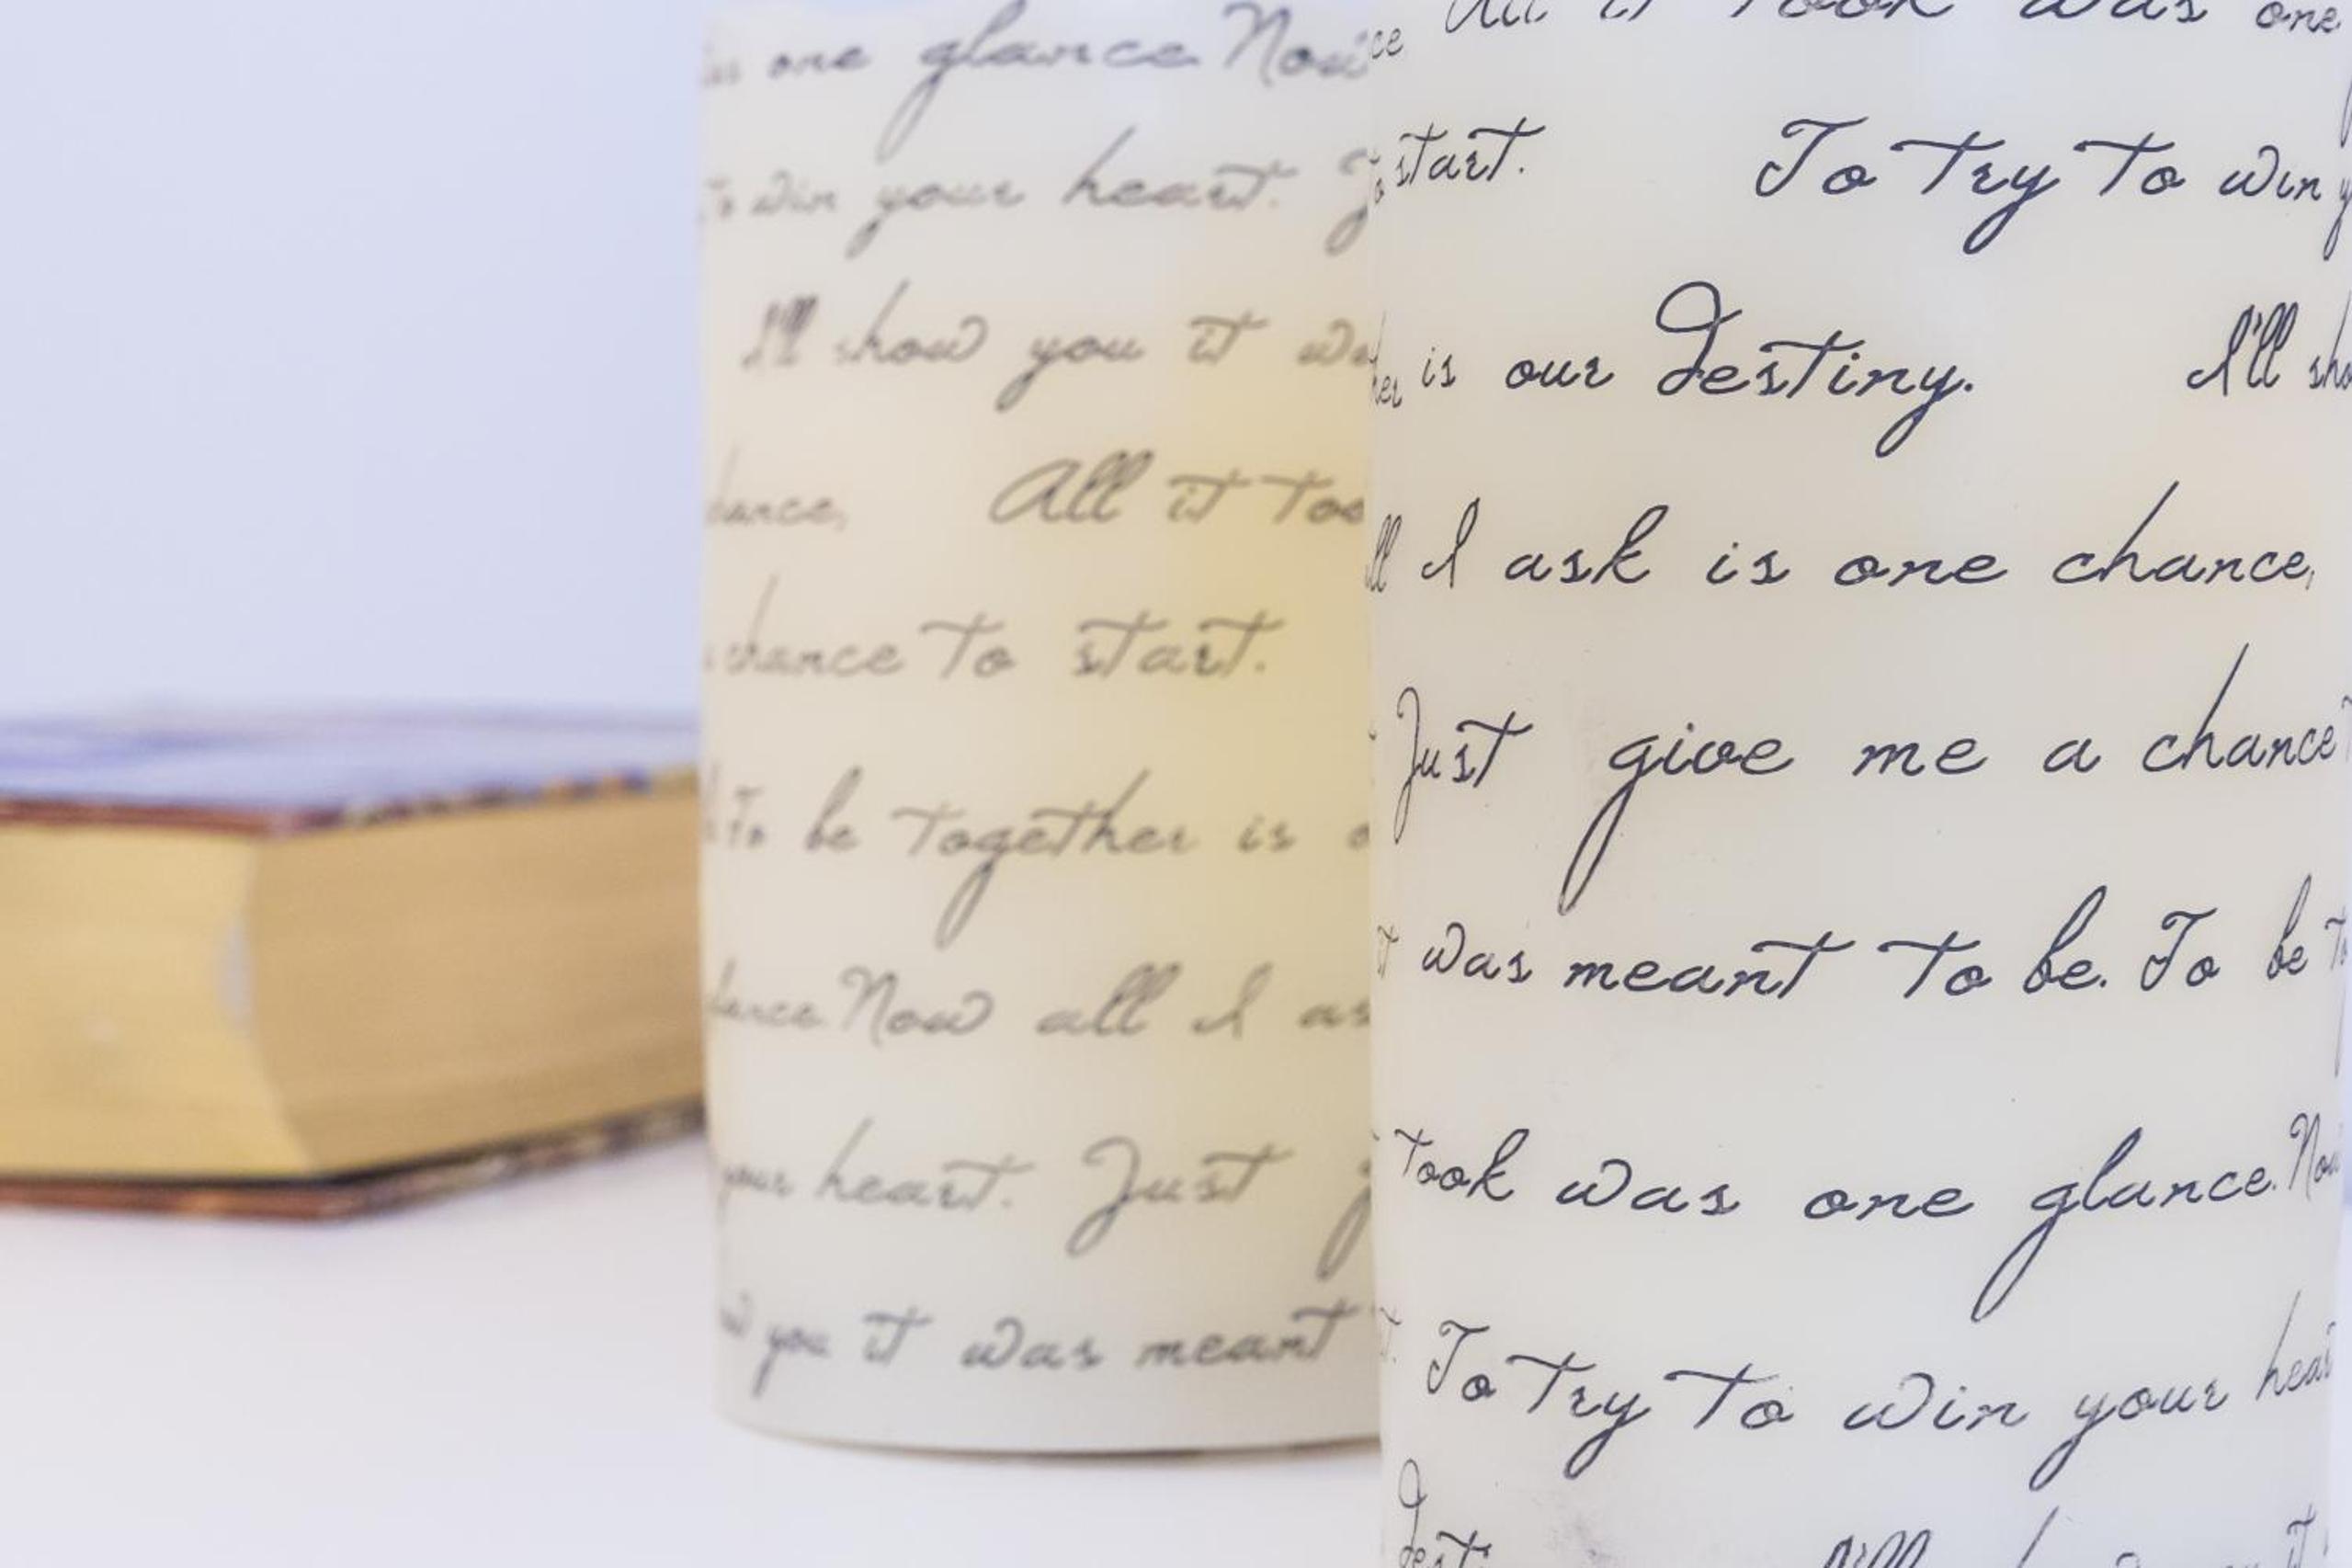 one glance Now
to win your heart.
I'll show you it
All it
chance to start.
To be together is
Now all I
your heart. Just
you it was meant
All it took was one
start. To try to win
is our destiny. I'll
I ask is one chance,
Just give me a chance
was meant to be. To be
took was one glance. Now
To try to win your